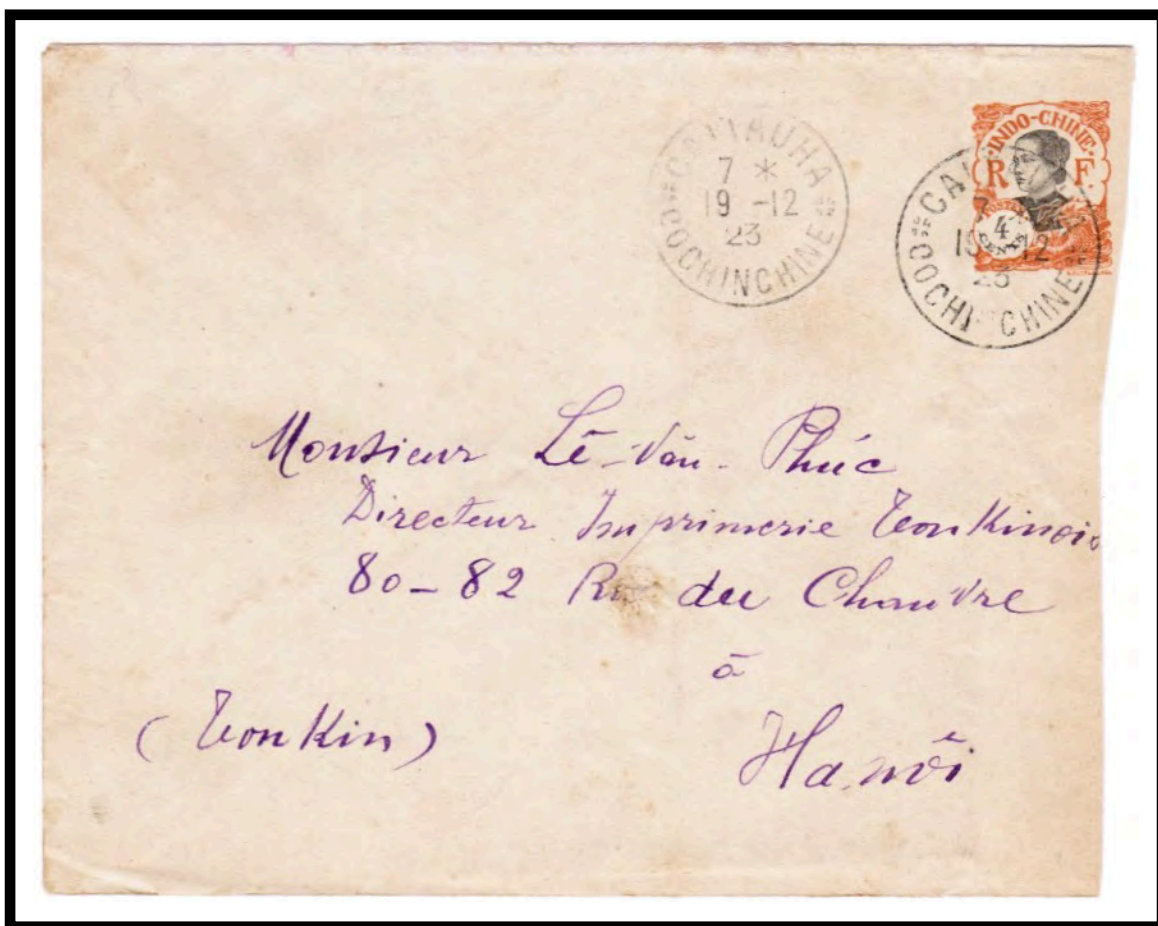 CAITAUHA
7 *
19 -12
23
COCHINCHINE
INDO-CHINE
R F
POSTES
4
CENTS
7
19 -12
23
COCHINCHINE
Monsieur Lê-Văn-Phúc
Directeur Imprimerie Tonkinois
80-82 Rue du Chanvre
à
(Tonkin) Ha-nôi